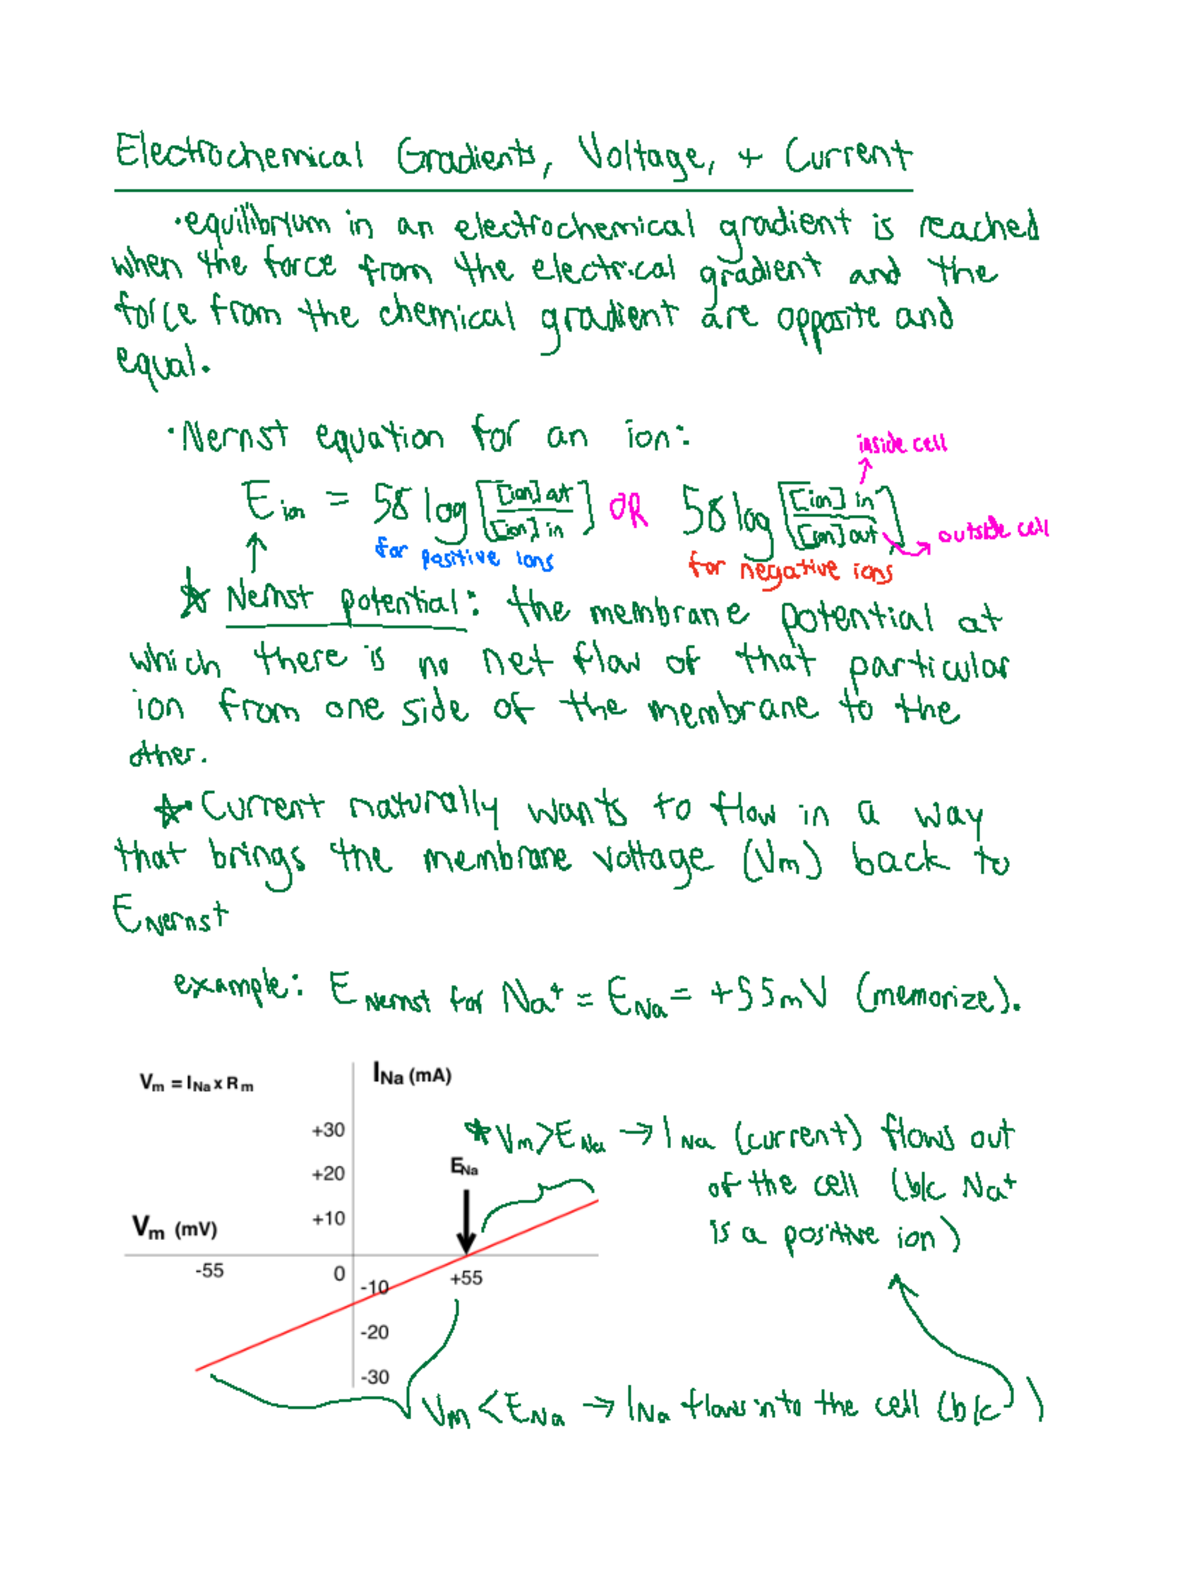 Electrochemical Gradients, Voltage, + Current
•equilibrium in an electrochemical gradient is reached
when the force from the electrical gradient and the
force from the chemical gradient are opposite and
equal.
•Nernst equation for an ion:
inside cell
E ion = 58 log [[ion] out / [ion] in] OR 58 log [[ion] in / [ion] out]
outside cell
for positive ions
for negative ions
Nernst potential: the membrane potential at
which there is no net flow of that particular
ion from one side of the membrane to the
other.
• Current naturally wants to flow in a way
that brings the membrane voltage (Vm) back to
E Nernst
example: E Nernst for Na+ = E Na = +55mV (memorize).
Vm = INa x Rm
INa (mA)
+30
+20
+10
Vm (mV)
-55
0
+55
-10
-20
-30
ENa
*Vm > ENa → INa (current) flows out
of the cell (b/c Na+
is a positive ion)
Vm < ENa → INa flows into the cell (b/c )